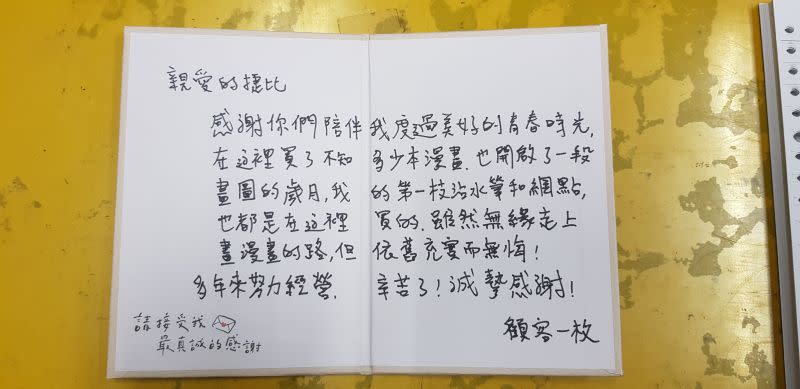 親愛的捷比
感謝你們陪伴我度過美好的青春時光,
在這裡買了不知多少本漫畫.也開啟了一段
畫圖的歲月,我的第一枝沾水筆和網點,
也都是在這裡買的.雖然無緣走上
畫漫畫的路,但依舊充實而無悔!
多年來努力經營.辛苦了!誠摯感謝!
請接受我
最真誠的感謝
顧客一枚